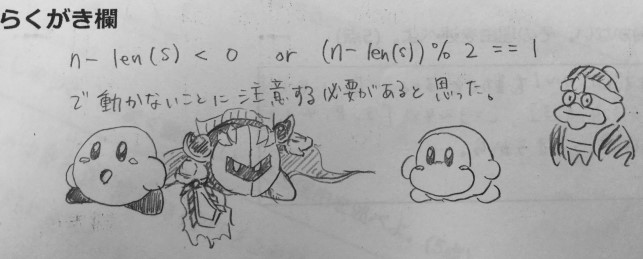 らくがき欄
n-len(s) < 0 or (n-len(s))%2 == 1
で動かないことに注意する必要があると思った。